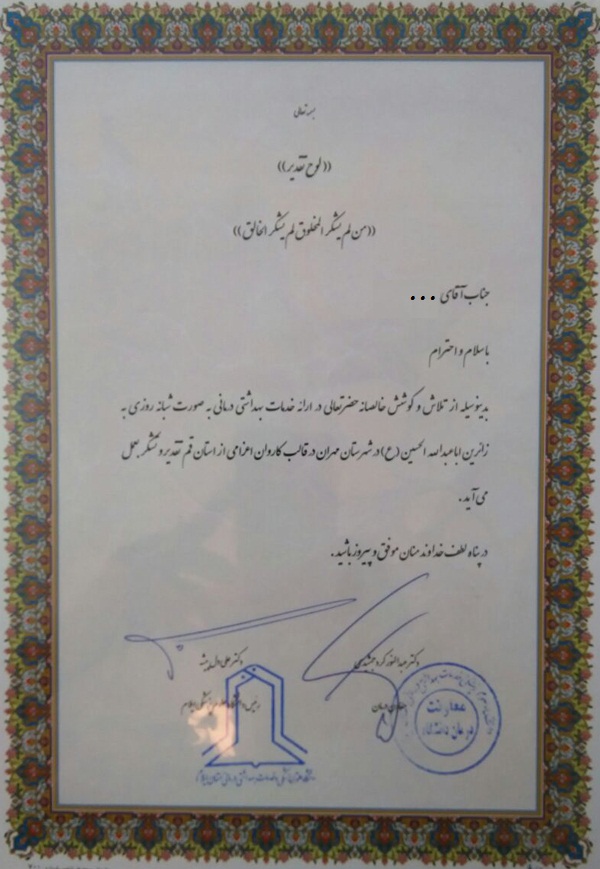 بسمه تعالی
((لوح تقدیر))
((من لم یشکر المخلوق لم یشکر الخالق))
جناب آقای ...
باسلام و احترام
بدینوسیله از تلاش و کوشش خالصانه حضرتعالی در ارائه خدمات بهداشتی درمانی به صورت شبانه روزی به
زائرین اباعبدالله الحسین (ع) در شهرستان مهران در قالب کاروان اعزامی از استان قم تقدیر و تشکر بعمل
می آید.
در پناه لطف خداوند منان موفق و پیروز باشید.
دکتر
دکتر علی
معاون درمان
رئیس دانشگاه علوم پزشکی ایلام
معاونت
درمان دانشگاه
دانشگاه علوم پزشکی و خدمات بهداشتی درمانی استان ایلام